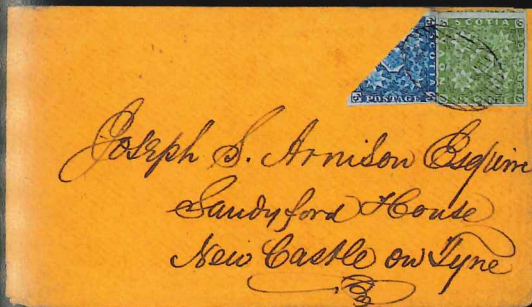 SCOTIA
POSTAGE
Joseph S. Arnison Esquire
Sandyford House
New Castle on Tyne